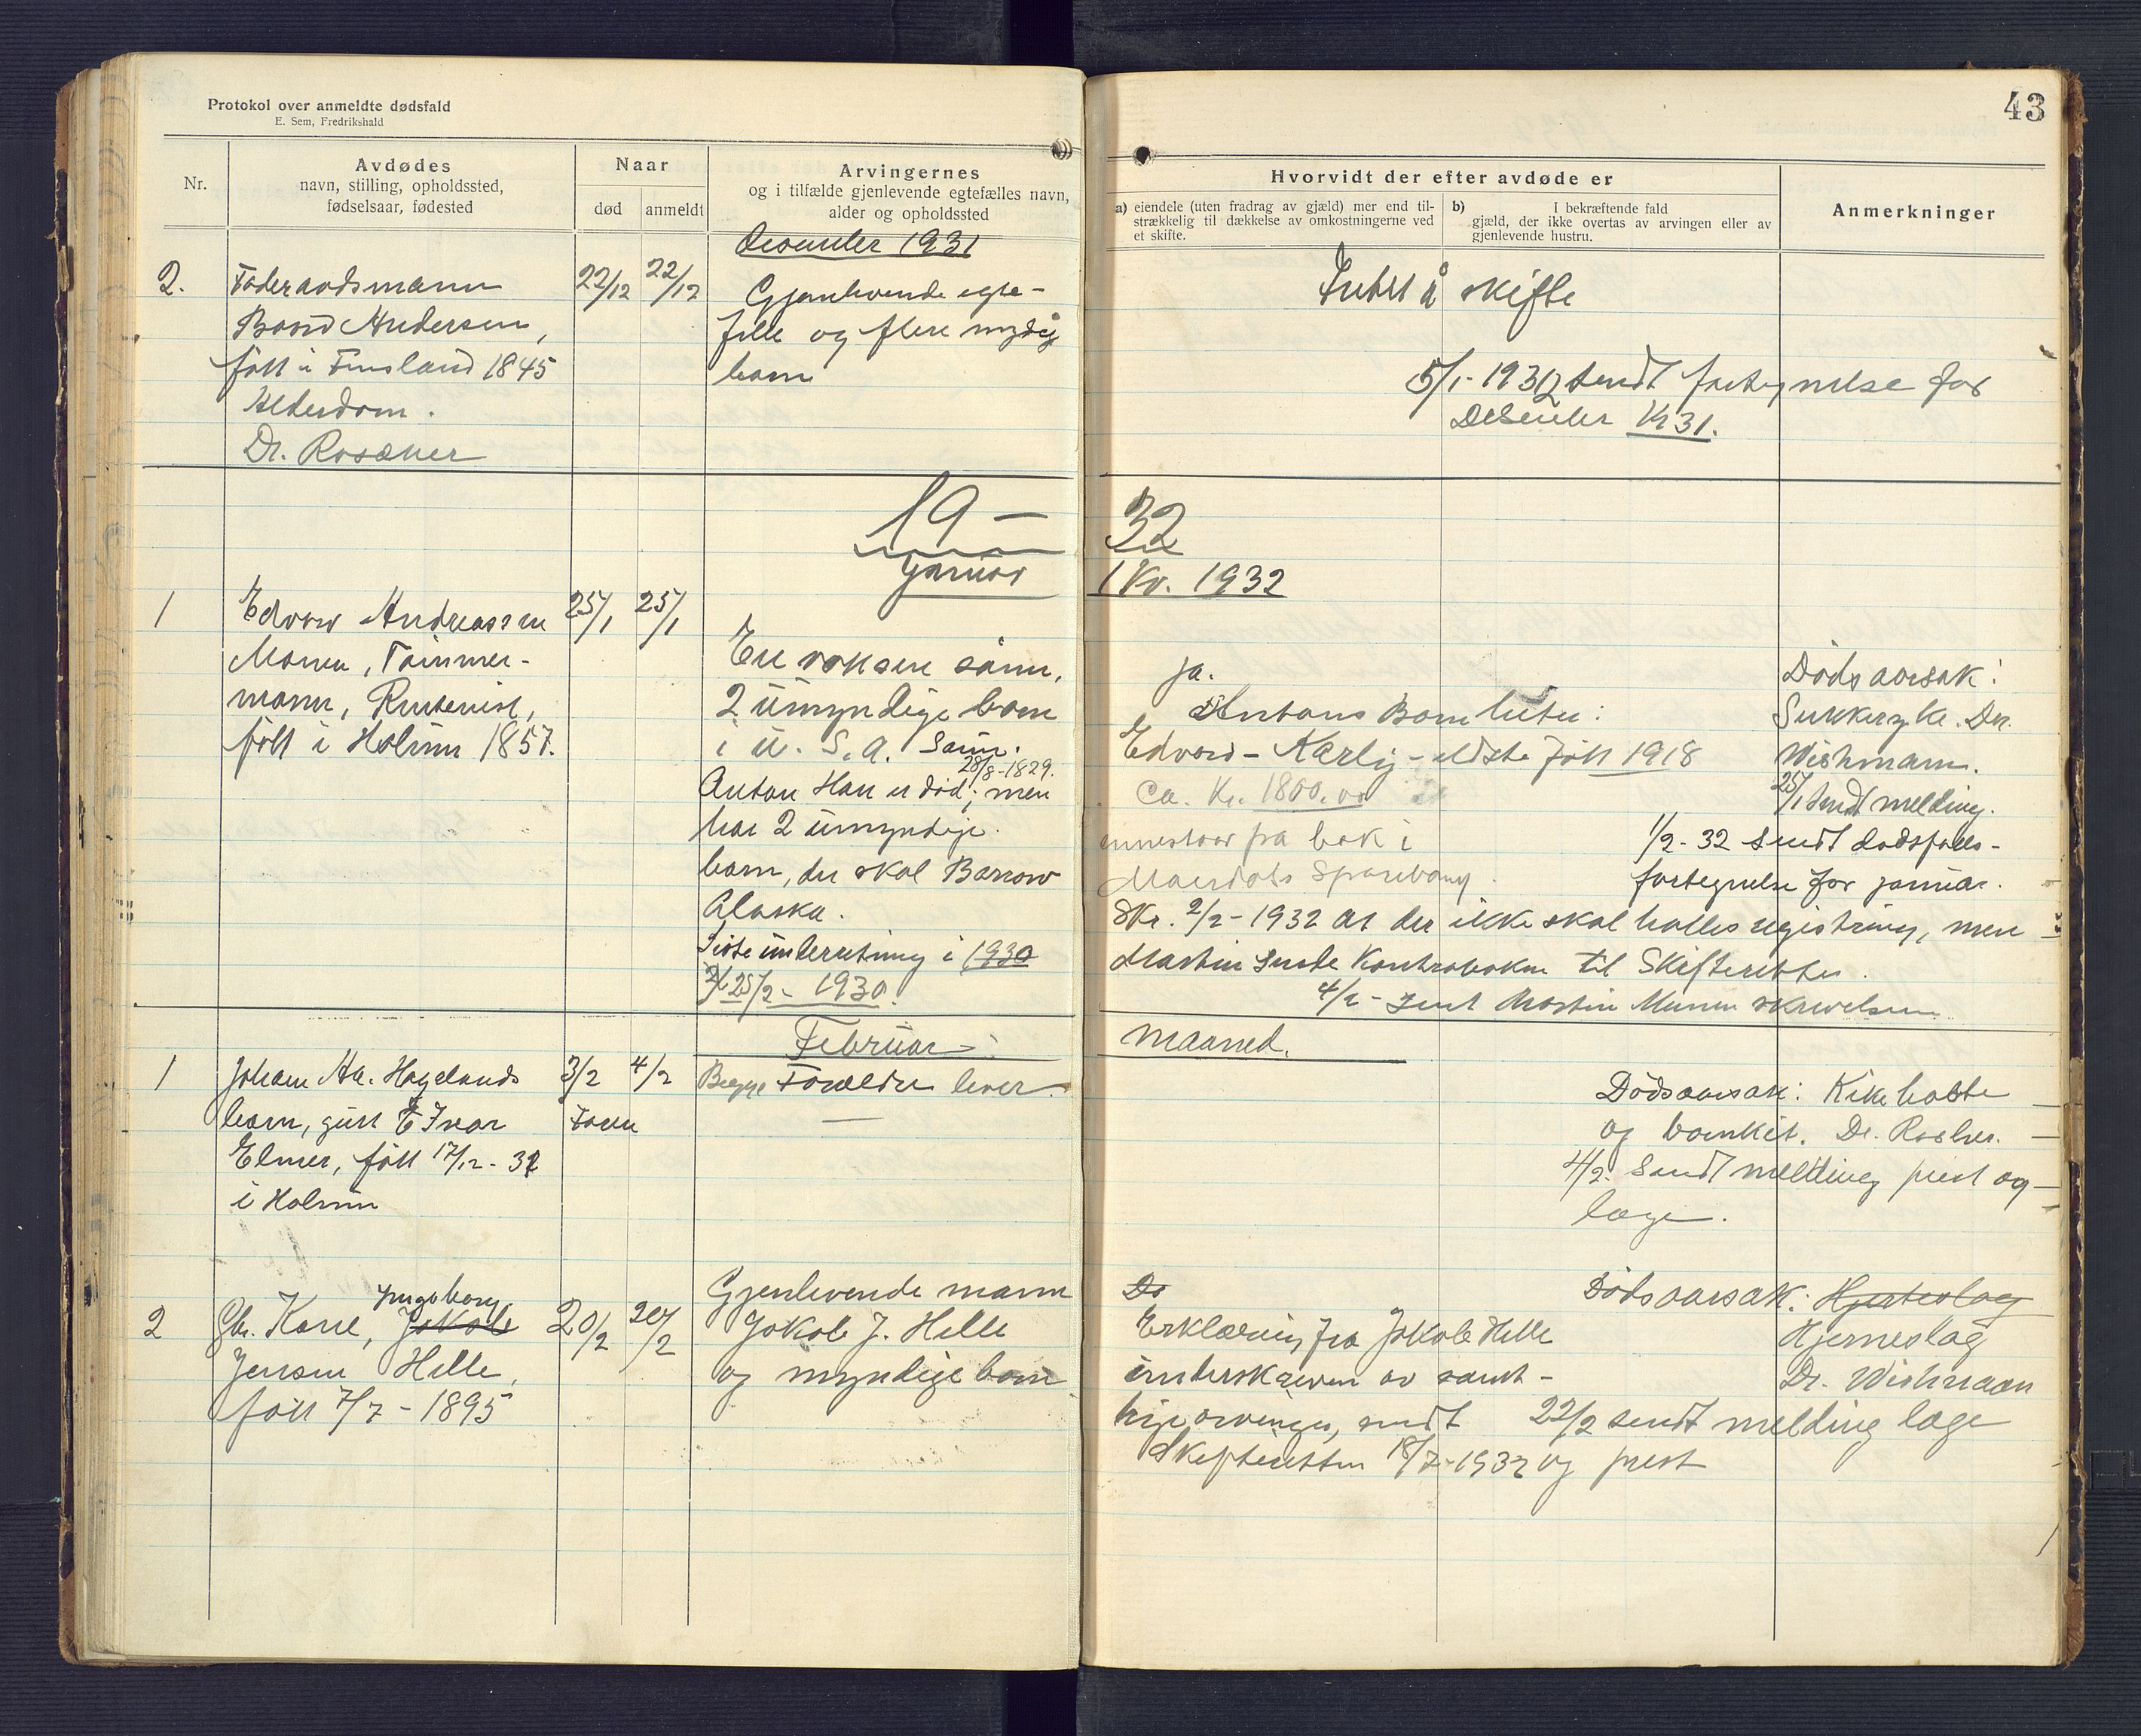 Protokol over anmeldte dødsfald
E. Sem, Fredrikshald
Nr.
Avdødes
navn, stilling, opholdssted,
fødselsaar, fødested
Naar
død
anmeldt
Arvingernes
og i tilfælde gjenlevende egtefælles navn,
alder og opholdssted
Desember 1931
2.
Foderaadsmann
Andersen,
født i Finsland 1845
Alderdom.
Dr. Rosæner
22/12
22/12
Gjenlevende egte-
felle og flere myndige
barn
19 –
Januar
1
Edvard Andreassen
Monen, Tømmer-
mann,
født i Holum 1857.
25/1
25/1
En voksen sønn,
2 umyndige barn
i U. S. A. Sønn.
28/8-1829.
Anton Han er død; men
har 2 umyndige
barn, der skal Barrow
Alaska.
Siste underretning i 1930
25/2 - 1930.
Februar
1
Johan Aa. Hagelands
barn, gutt Ivar
Elmer, født 17/12 - 31
i Holum
3/2
4/2
Begge Foreldre lever.
2
Gbr. Kone, Jakob
Ingeborg
Jensen Helle,
født 7/7 - 1895
20/2
20/2
Gjenlevende mann
Jakob J. Helle
og myndige barn
43
Hvorvidt der efter avdøde er
a) eiendele (uten fradrag av gjæld) mer end til-
strækkelig til dækkelse av omkostningerne ved
et skifte.
b) I bekræftende fald
gjæld, der ikke overtas av arvingen eller av
gjenlevende hustru.
Anmerkninger
Intet å skifte
5/1-1932 sendt fortegnelse for
Desember 1931.
32
1 Kv. 1932
ja.
Antons Barn heter:
Edvard - Karly - eldste født 1918
Ca. Kr. 1800.00
innestaar på bok i
Sparebank.
Dødsaarsak:
Sukkersyke. Dr.
Wishmann.
25/1 Sendt melding.
1/2 - 32 sendt dødsfalls-
fortegnelse for januar.
Skr. 2/2 - 1932 at der ikke skal holdes registrering, men
Martin sende Kontraboken til Skifteretten.
4/2 - sendt Martin Monen skrivelsen
maaned.
Dødsaarsak: Kikhoste
og Dr.
4/2. Sendt melding prest og
læge.
Do
Erklæring fra Jakob Helle
underskreven av samt-
lige arvinger, sendt
Skifteretten 18/7-1932
Dødsaarsak: Hjerteslag
Hjerneslag
Dr. Wishmann
22/2 sendt melding læge
og prest